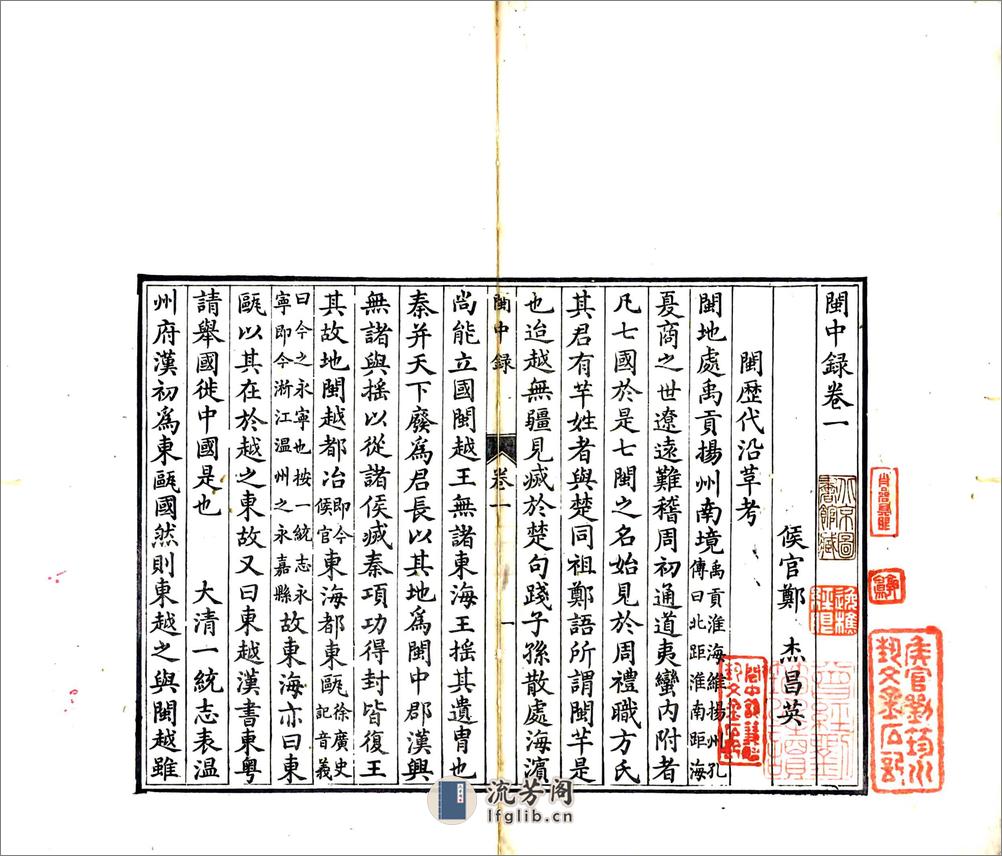 閩中録卷一
侯官鄭 杰昌英
閩歷代沿革考
閩地處禹貢揚州南境禹貢淮海維揚州孔
傳曰北距淮南距海
夏商之世遼遠難稽周初通道夷蠻内附者
凡七國於是七閩之名始見於周禮職方氏
其君有芊姓者與楚同祖鄭語所謂閩芊是
也迨越無疆見滅於楚句踐子孫散處海濵
閩中録 卷一 一
尚能立國閩越王無諸東海王揺其遺胄也
秦并天下廢爲君長以其地爲閩中郡漢興
無諸與揺以從諸侯滅秦項功得封皆復王
其故地閩越都冶即今
侯官東海都東甌徐廣史
記音義
曰今之永寧也按一統志永
寧即今淅江温州之永嘉縣故東海亦曰東
甌以其在於越之東故又曰東越漢書東粤
請舉國徙中國是也 大清一統志表温
州府漢初爲東甌國然則東越之與閩越雖
侯官劉筠川
藝文金石記
流芳阁
lfglib.cn